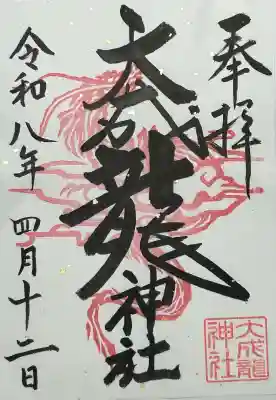 奉拝
大成龍神社
令和八年 四月十二日
大成龍
神社